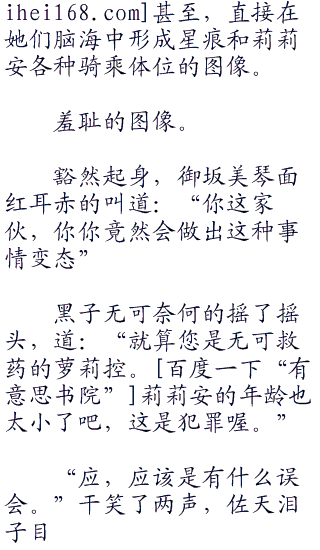 ihei168.com]甚至，直接在
她们脑海中形成星痕和莉莉
安各种骑乘体位的图像。
羞耻的图像。
豁然起身，御坂美琴面
红耳赤的叫道：“你这家
伙，你你竟然会做出这种事
情变态”
黑子无可奈何的摇了摇
头，道：“就算您是无可救
药的萝莉控。[百度一下“有
意思书院”]莉莉安的年龄也
太小了吧，这是犯罪喔。”
“应，应该是有什么误
会。”干笑了两声，佐天泪
子目